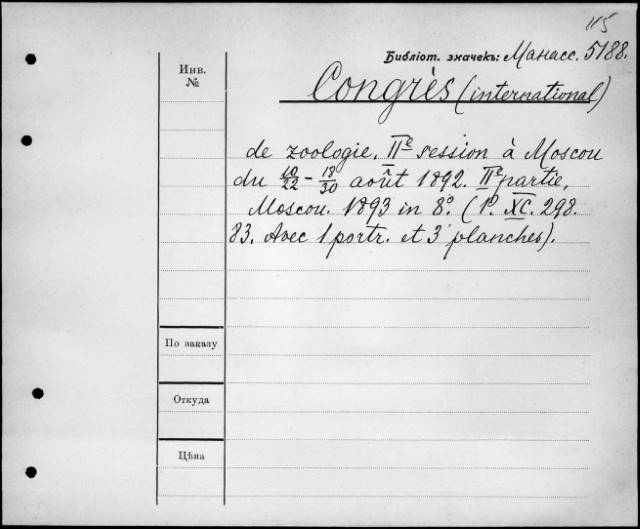 115
Библіот. значекъ: Манасс. 5188.
Инв.
№
Congrès (international)
de zoologie. IIe session à Moscou
du 10/22 – 18/30 août 1892. IIe partie,
Moscou. 1893 in 8º. (1º. XC. 298.
83. Avec 1 portr. et 3 planches).
По заказу
Откуда
Цѣна